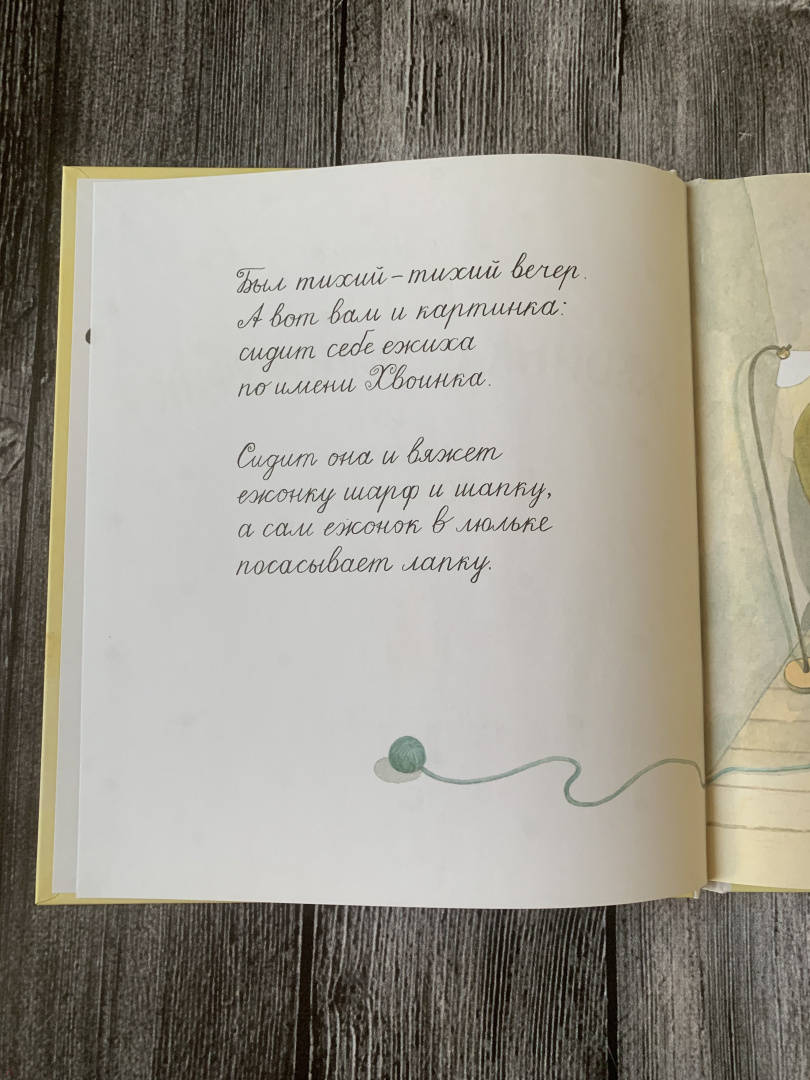 Был тихий-тихий вечер.
А вот вам и картинка:
сидит себе ежиха
по имени Хвоинка.
Сидит она и вяжет
ежонку шарф и шапку,
а сам ежонок в люльке
посасывает лапку.